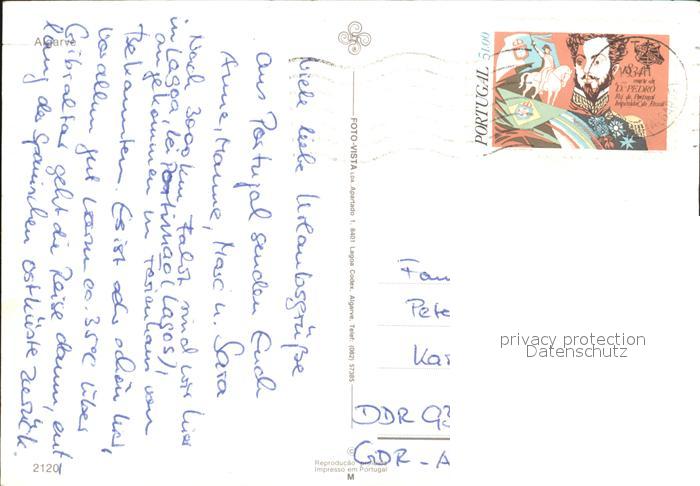 Algarve
Viele liebe Urlaubsgrüße
aus Portugal senden Euch
Anne, Manne, Marc u. Sara
Nach 3000 km Fahrt sind wir hier
in Lagoa, bei Portimao (Lagos),
angekommen in Ferienhaus von
Bekannten. Es ist sehr schön hier,
vor allem gut warm ca. 35°C. Über
Gibraltar geht die Reise dann, ent-
lang der spanischen Ostküste zurück.
2120
FOTO-VISTA LDA. Apartado 1, 8401 Lagoa Codex, Algarve, Telef: (082) 57385
Reprodução
Impresso em Portugal
M
PORTUGAL 51.00
1834
morte de
D. PEDRO
Rei de Portugal
Imperador do Brasil
Fam
Pete
Kar
DDR 93
GDR - A
privacy protection
Datenschutz